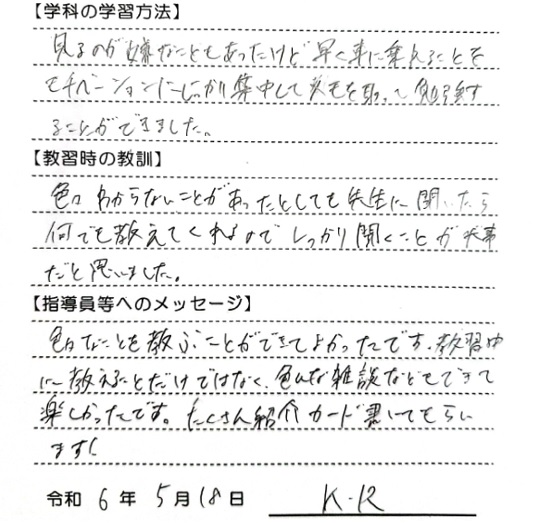 【学科の学習方法】
見るのが嫌なこともあったけど早く車に乗れることを
モチベーションにしっかり集中してメモを取って勉強す
ることができました。
【教習時の教訓】
色々わからないことがあったとしても先生に聞いたら
何でも教えてくれるのでしっかり聞くことが大事
だと思いました。
【指導員等へのメッセージ】
色々なことを教ぶことができてよかったです。教習中
に教えることだけではなく、色んな雑談などもできて
楽しかったです。たくさん紹介カード書いてもらい
ます!
令和 6 年 5 月 18 日 K.R